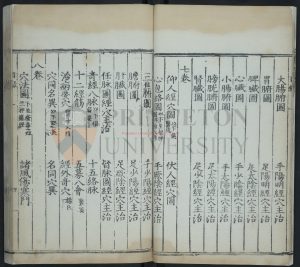 大腸腑圖　手陽明經穴主治
胃腑圖　足陽明經穴主治
脾臟圖　足太陰經穴主治
心臟圖　手少陰經穴主治
小腸腑圖　手太陽經穴主治
膀胱腑圖　足太陽經穴主治
腎臟圖　足少陰經穴主治
七卷
仰人經穴圖　伏人經穴圖
心包絡圖　手厥陰經穴主治
三焦腑圖　手少陽經穴主治
膽腑圖　足少陽經穴主治
肝臟圖　足厥陰經穴主治
任脉圖經穴主治　督脉圖經穴主治
奇經八脉　十五絡脉
十二經筋　五募八會
治病要穴　經外奇穴
穴同名異　名同穴異
八卷
穴法圖　諸風傷寒門
PRINCETON
UNIVERSITY